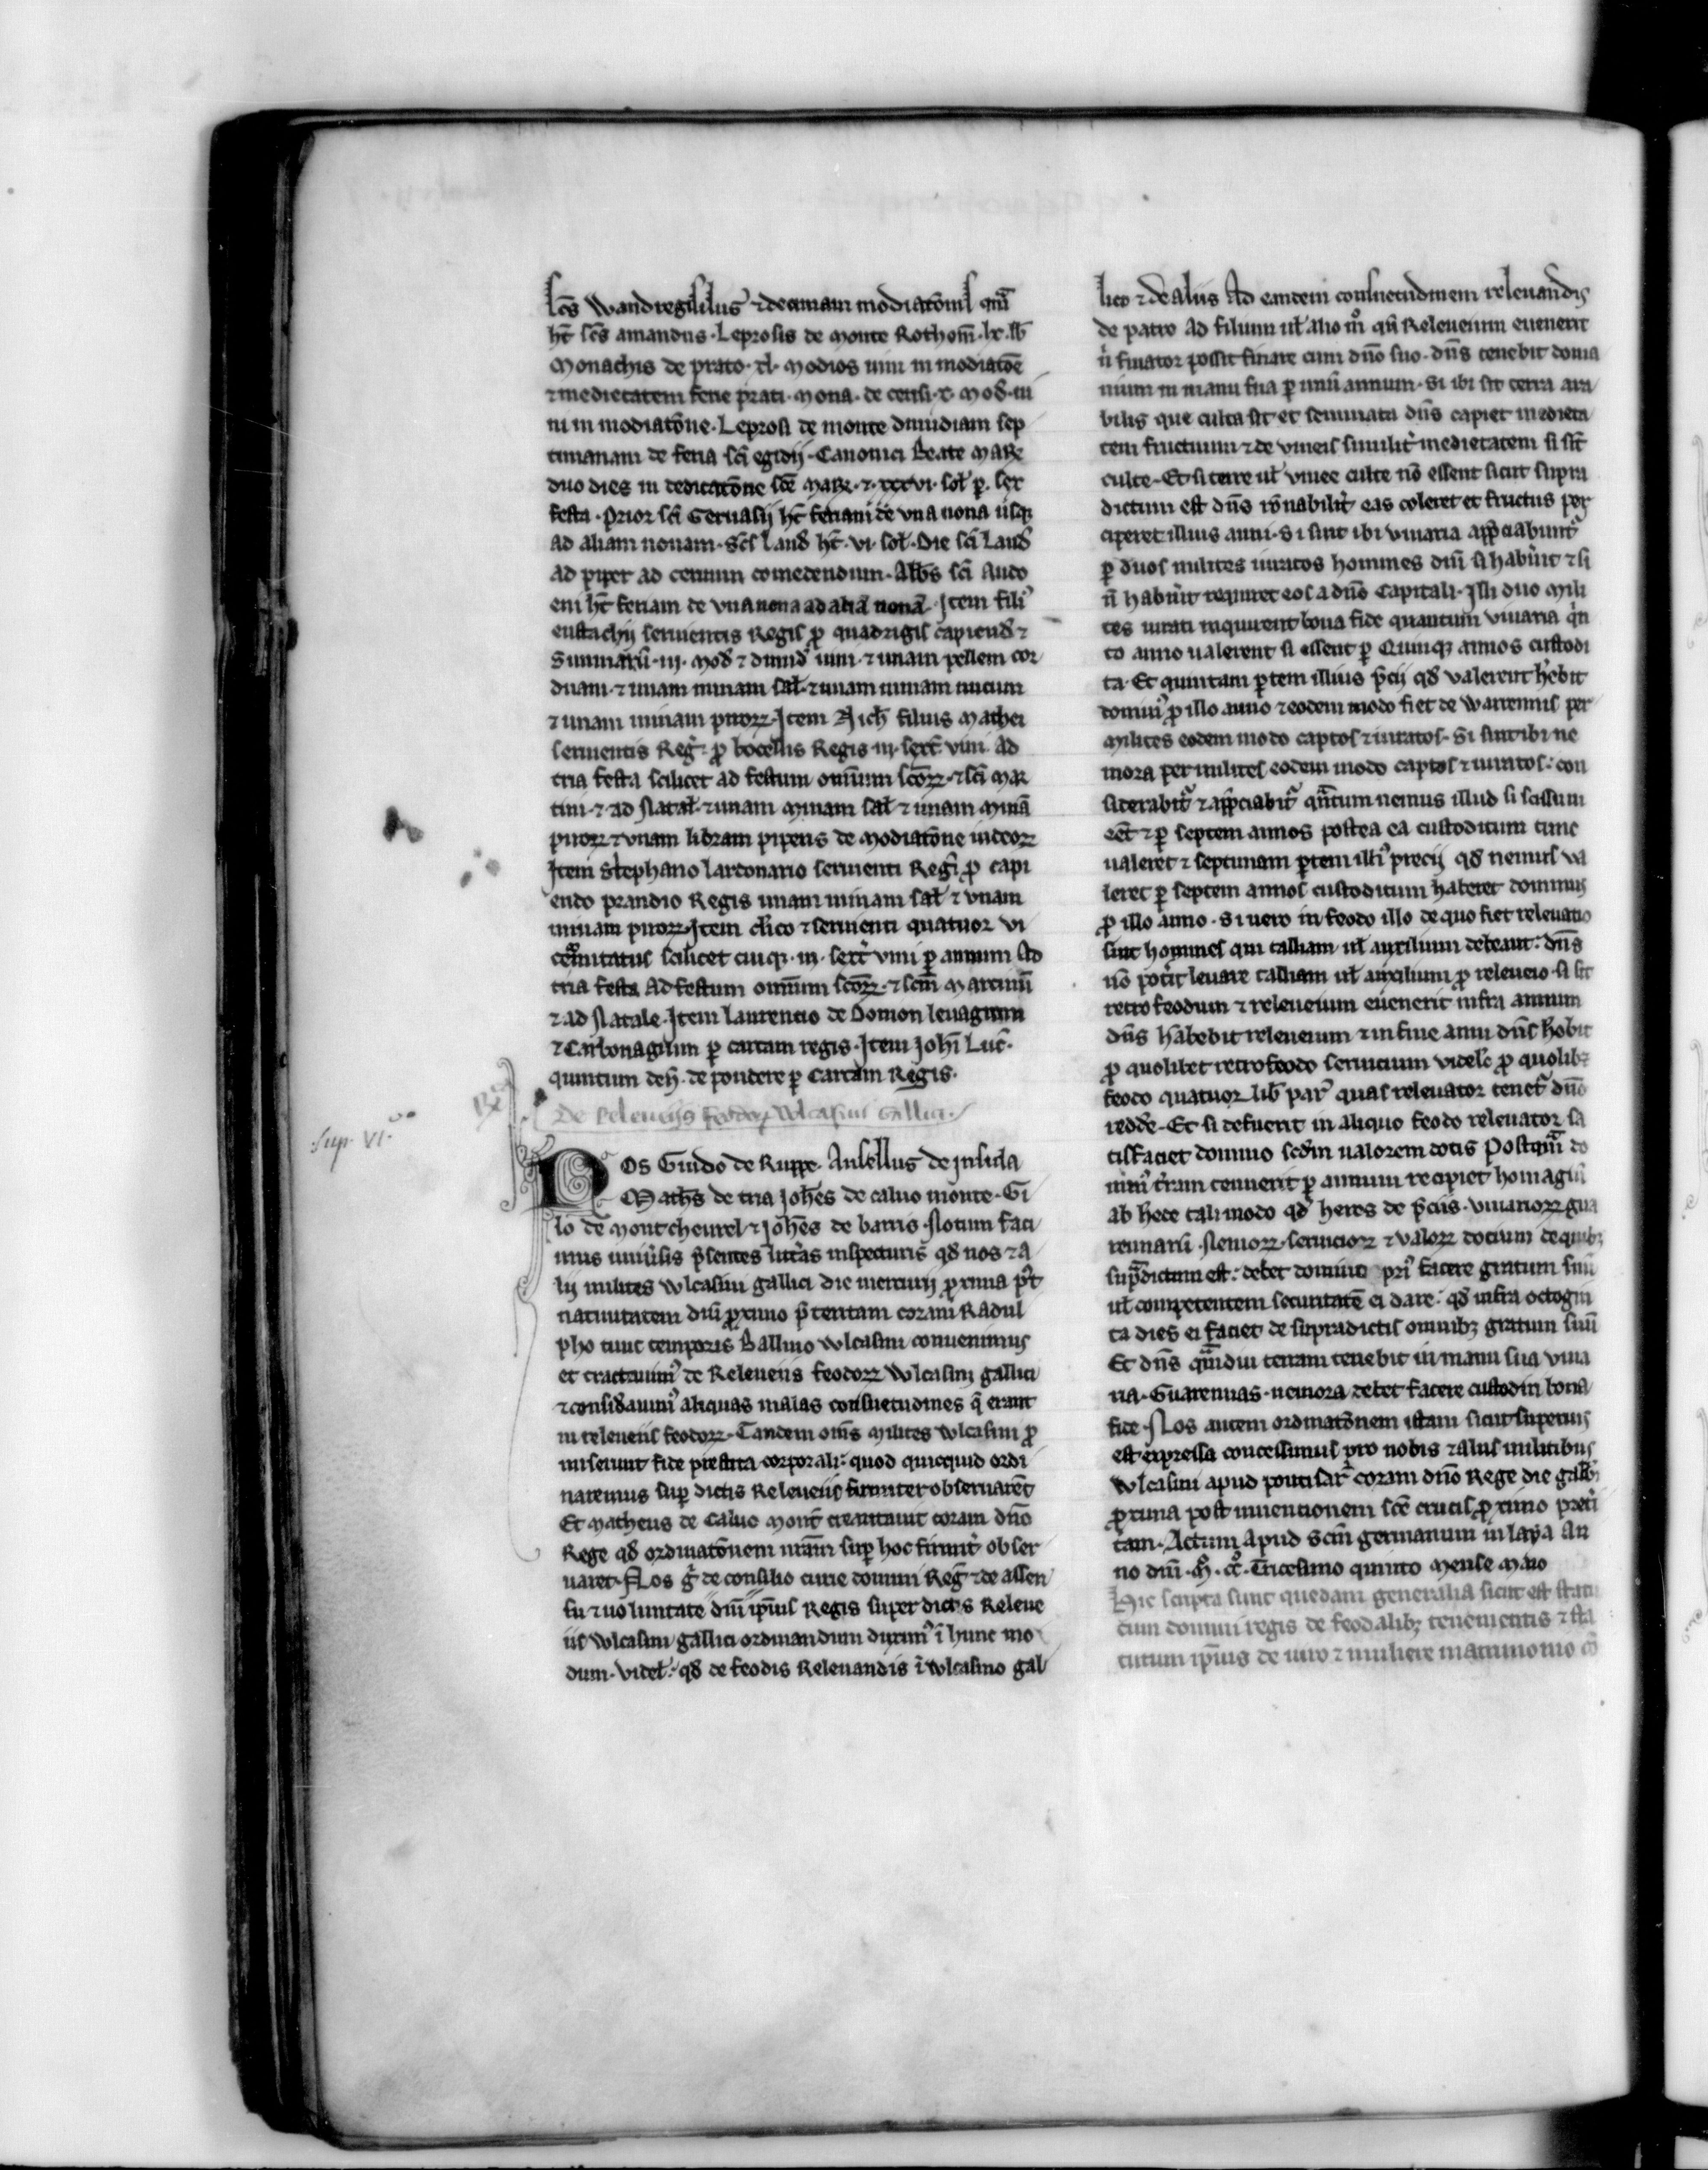 scs Wandregisilus ⁊ decimam modiatōnis qm̄
ht̄ scs amandus. Leprosis de monte Rothom̄. lx. lb̄
Monachis de prato. xl. modios vini in modiatōe
⁊ medietatem ferie prati. Mona. de censu. x. mod. vi
ni in modiatōne. Leprosi de monte dimidiam sep
timanam de feria sc̄i egidij. Canonici Beate MaRe
duo dies in dedicatōne sc̄e MaRe. ⁊. xxxvi. sol̄. p̱. sex
festa. Prior sc̄i Geruasij ht̄ feriam de vna nona usqȝ
ad aliam nonam. Scs laud̄ ht̄. vi. sol̄. Die sc̄i Laud̄
ad piper ad ceruum comedendum. Abb̄s sc̄i Audo
eni ht̄ feriam de vna nona ad aliā nonā. Item fili᷒
eustachij seruientis Regis ꝓ quadrigis capiend̄ ⁊
Summarū. iij. mod̄ ⁊ dimid̄ vini. ⁊ unam pellem cor
duan. ⁊ unam minam sal̄. ⁊ unam minam nucum
⁊ unam minam piroꝝ. Item Rich̄ filius Mathei
seruientis Reḡ. ꝓ bocellis Regis iij. sext̄ vini. ad
tria festa scilicet ad festum omnium scōꝝ. ⁊ sc̄i Mar
tini. ⁊. ad Natal̄. ⁊ unam Minam sal̄ ⁊ unam Minā
piroꝝ ⁊ vnam libram piperis de Modiatōne iudeoꝝ
Item Stephano lardonario seruienti Reḡ. ꝓ capi
endo prandio Regis unam minam sal̄ ⁊ vnam
minam piroꝝ. Item clīco ⁊ seruienti quatuor vi
cecomitatus scilicet cuiqȝ. iij. sext̄ vini p̱ annum Ad
tria festa Ad festum omnium scōꝝ. ⁊ scm̄ Martinū
⁊ ad Natale. Item laurentio de Domon leuagium
⁊ Carbonagium p̱ cartam regis. Item Joh̄i Luc̄.
quintum den̄. de pondere p̱ Cartam Regis.
De Releueijs feodoꝝ Wlcasini Gallici.
Sup. VI.
Nos Guido de Ruppe. Ansellus de Insula
Math̄s de tria Joh̄es de caluo monte. Gi
lo de Montcheurel ⁊ Joh̄es de barris. Notum faci
mus uniu̅sis p̄sentes litt̄as inspecturis qd̄ nos ⁊ a
lij milites Wlcasini gallici die mercurij ꝓxima p̄t
natiuitatem dn̄i ꝓximo p̄teritam coram Radul
pho tunc temporis Balliuo Wlcasini conuenimus
et tractauim᷒ de Releueiis feodoꝝ Wlcasini gallici
⁊ consid̄auim᷒ aliquas malas consuetudines q̄ erant
in releueiis feodoꝝ. Tandem om̄s Milites Wlcasini ꝓ
miserunt fide prestita corporali: quod quicquid ordi
naremus sup̱ dictis Releueiis firmiter obseruarēt
Et Matheus de Caluo Mont̄ creantauit coram dn̄o
Rege qd̄ ordinatōnem nr̄am sup̱ hoc firmit̄ obser
uaret. Nos g̊ de consilio curie domini Reḡ ⁊ de assen
su ⁊ voluntate dn̄i ip̄ius Regis super dictis Releue
iis Wlcasini gallici ordinandum duxim᷒ ī hunc mo
dum. videl̄: qd̄ de feodis Releuandis ī Wlcasino gal
lico ⁊ de aliis Ad eandem consuetudinem releuandis
de patre ad filium ul̄ alio mo̊ qn̄ Releueium euenerit
n̄ finator possit finare cum dn̄o suo. dn̄s tenebit domi
nium in manu sua p̱ unū annum. Si ibi sit terra ara
bilis que culta sit et seminata dn̄s capiet medieta
tem fructuum ⁊ de vineis similit̄ medietatem si sīt
culte. Et si terre ul̄ vinee culte nō essent sicut supra
dictum est dn̄s rōnabilit̄ eas coleret et fructus per
ciperet illius anni. Si sint ibi viuaria app̄ciabunt᷑
p̱ duos milites iuratos homines dn̄i si habūit ⁊ si
n̄ habūit requiret eos a dn̄o Capitali. Illi duo Mili
tes iurati inquirent bona fide quantum viuaria q̊n
to anno ualerent si essent p̱ Quinqȝ annos custodi
ta. Et quintam p̱tem illius p̄cii qd̄ valerent h̄ebit
domin᷒ ꝓ illo anno ⁊ eodem modo fiet de Warennis per
Milites eodem modo captos ⁊ iuratos. Si sint ibi ne
mora per milites eodem modo captos ⁊ iuratos: con
siderabit᷑ ⁊ app̄ciabit᷑ qn̄tum nemus illud si scissum
eēt ⁊ p̱ septem annos postea ea custoditum tunc
ualeret ⁊ septimam p̱tem illi᷒ precij qd̄ nemus va
leret p̱ septem annos custoditum haberet dominus
ꝓ illo anno. Si uero in feodo illo de quo fiet releuatio
sint homines qui talliam ul̄ auxilium debeant: dn̄s
nō pot̄it leuare talliam ul̄ auxilium ꝓ releueio. si sit
retrofeodum ⁊ releueium euenerit infra annum
dn̄s habebit releueium ⁊ in fine anni dn̄s h̄ebit
ꝓ quolibet retrofeodo seruicium videl̄c ꝓ quolibȝ
feodo quatuor lib̄ par̄ quas releuator tenet᷑ dn̄o
redde̅. Et si defuerit in aliquo feodo releuator sa
tisfaciet domino scd̄m ualorem dotis Postqm̄ do
min᷒ tr̄am tenuerit p̱ annum recipiet homagiū
ab h̄ede tali modo qd̄ heres de p̄ciis. viuarioꝝ gua
rennarū. Nemoꝝ. seruicioꝝ ⁊ valoꝝ docium de quibȝ
sup̄dictum est: debet domino pri᷒ facere gratum suū
ul̄ competentem securitatē ei dare: qd̄ infra octogin
ta dies ei faciet de supradictis omnibȝ gratum suū
Et dn̄s qm̄diu terram tenebit in manu sua viua
ria. Guarennas. nemora debet facere custodiri bona
fide. Nos autem ordinatōnem istam sicut superius
est expressa concessimus pro nobis ⁊ aliis militibus
Wlcasini apud pontisar̄ coram dn̄o Rege die sabb̄i
ꝓxima post inuentionem sc̄e crucis ꝓximo pret̄i
tam. Actum apud Scm̄ germanum in laya An
no dn̄i. Mo̊. cco̊. Tricesimo quinto Mense Maio
Hic scripta sunt quedam generalia sicut est statu
tum domini regis de feodalibȝ tenementis ⁊ sta
tutum ip̄ius de uiro ⁊ muliere matrimonio cō